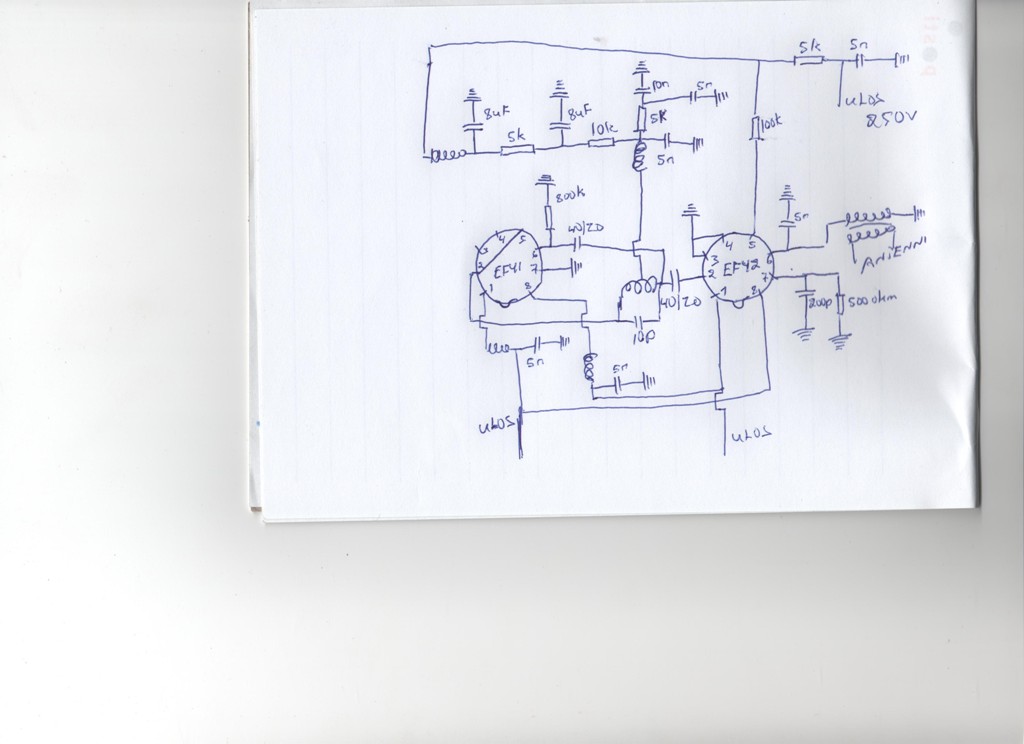 posit
5k
5n
ULOS
250V
8uF
8uF
10n
5n
5k
10k
5K
5n
100k
800k
40/20
5n
ANTENNI
4
5
3
2
EF41
6
7
1
8
4
5
3
2
EF42
6
7
1
8
40/20
10p
200p
500 ohm
5n
5n
ULOS
ULOS